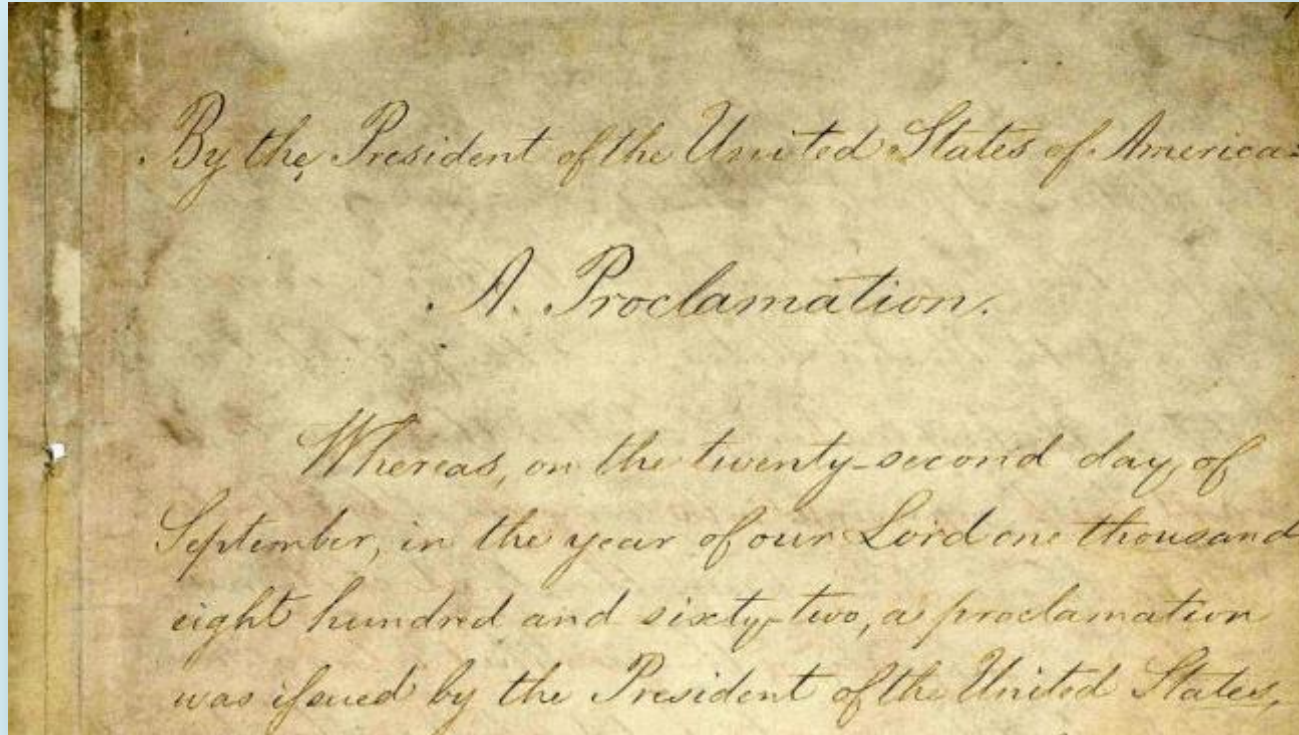 By the President of the United States of America:
A. Proclamation.
Whereas, on the twenty-second day of
September, in the year of our Lord one thousand
eight hundred and sixty-two, a proclamation
was issued by the President of the United States,